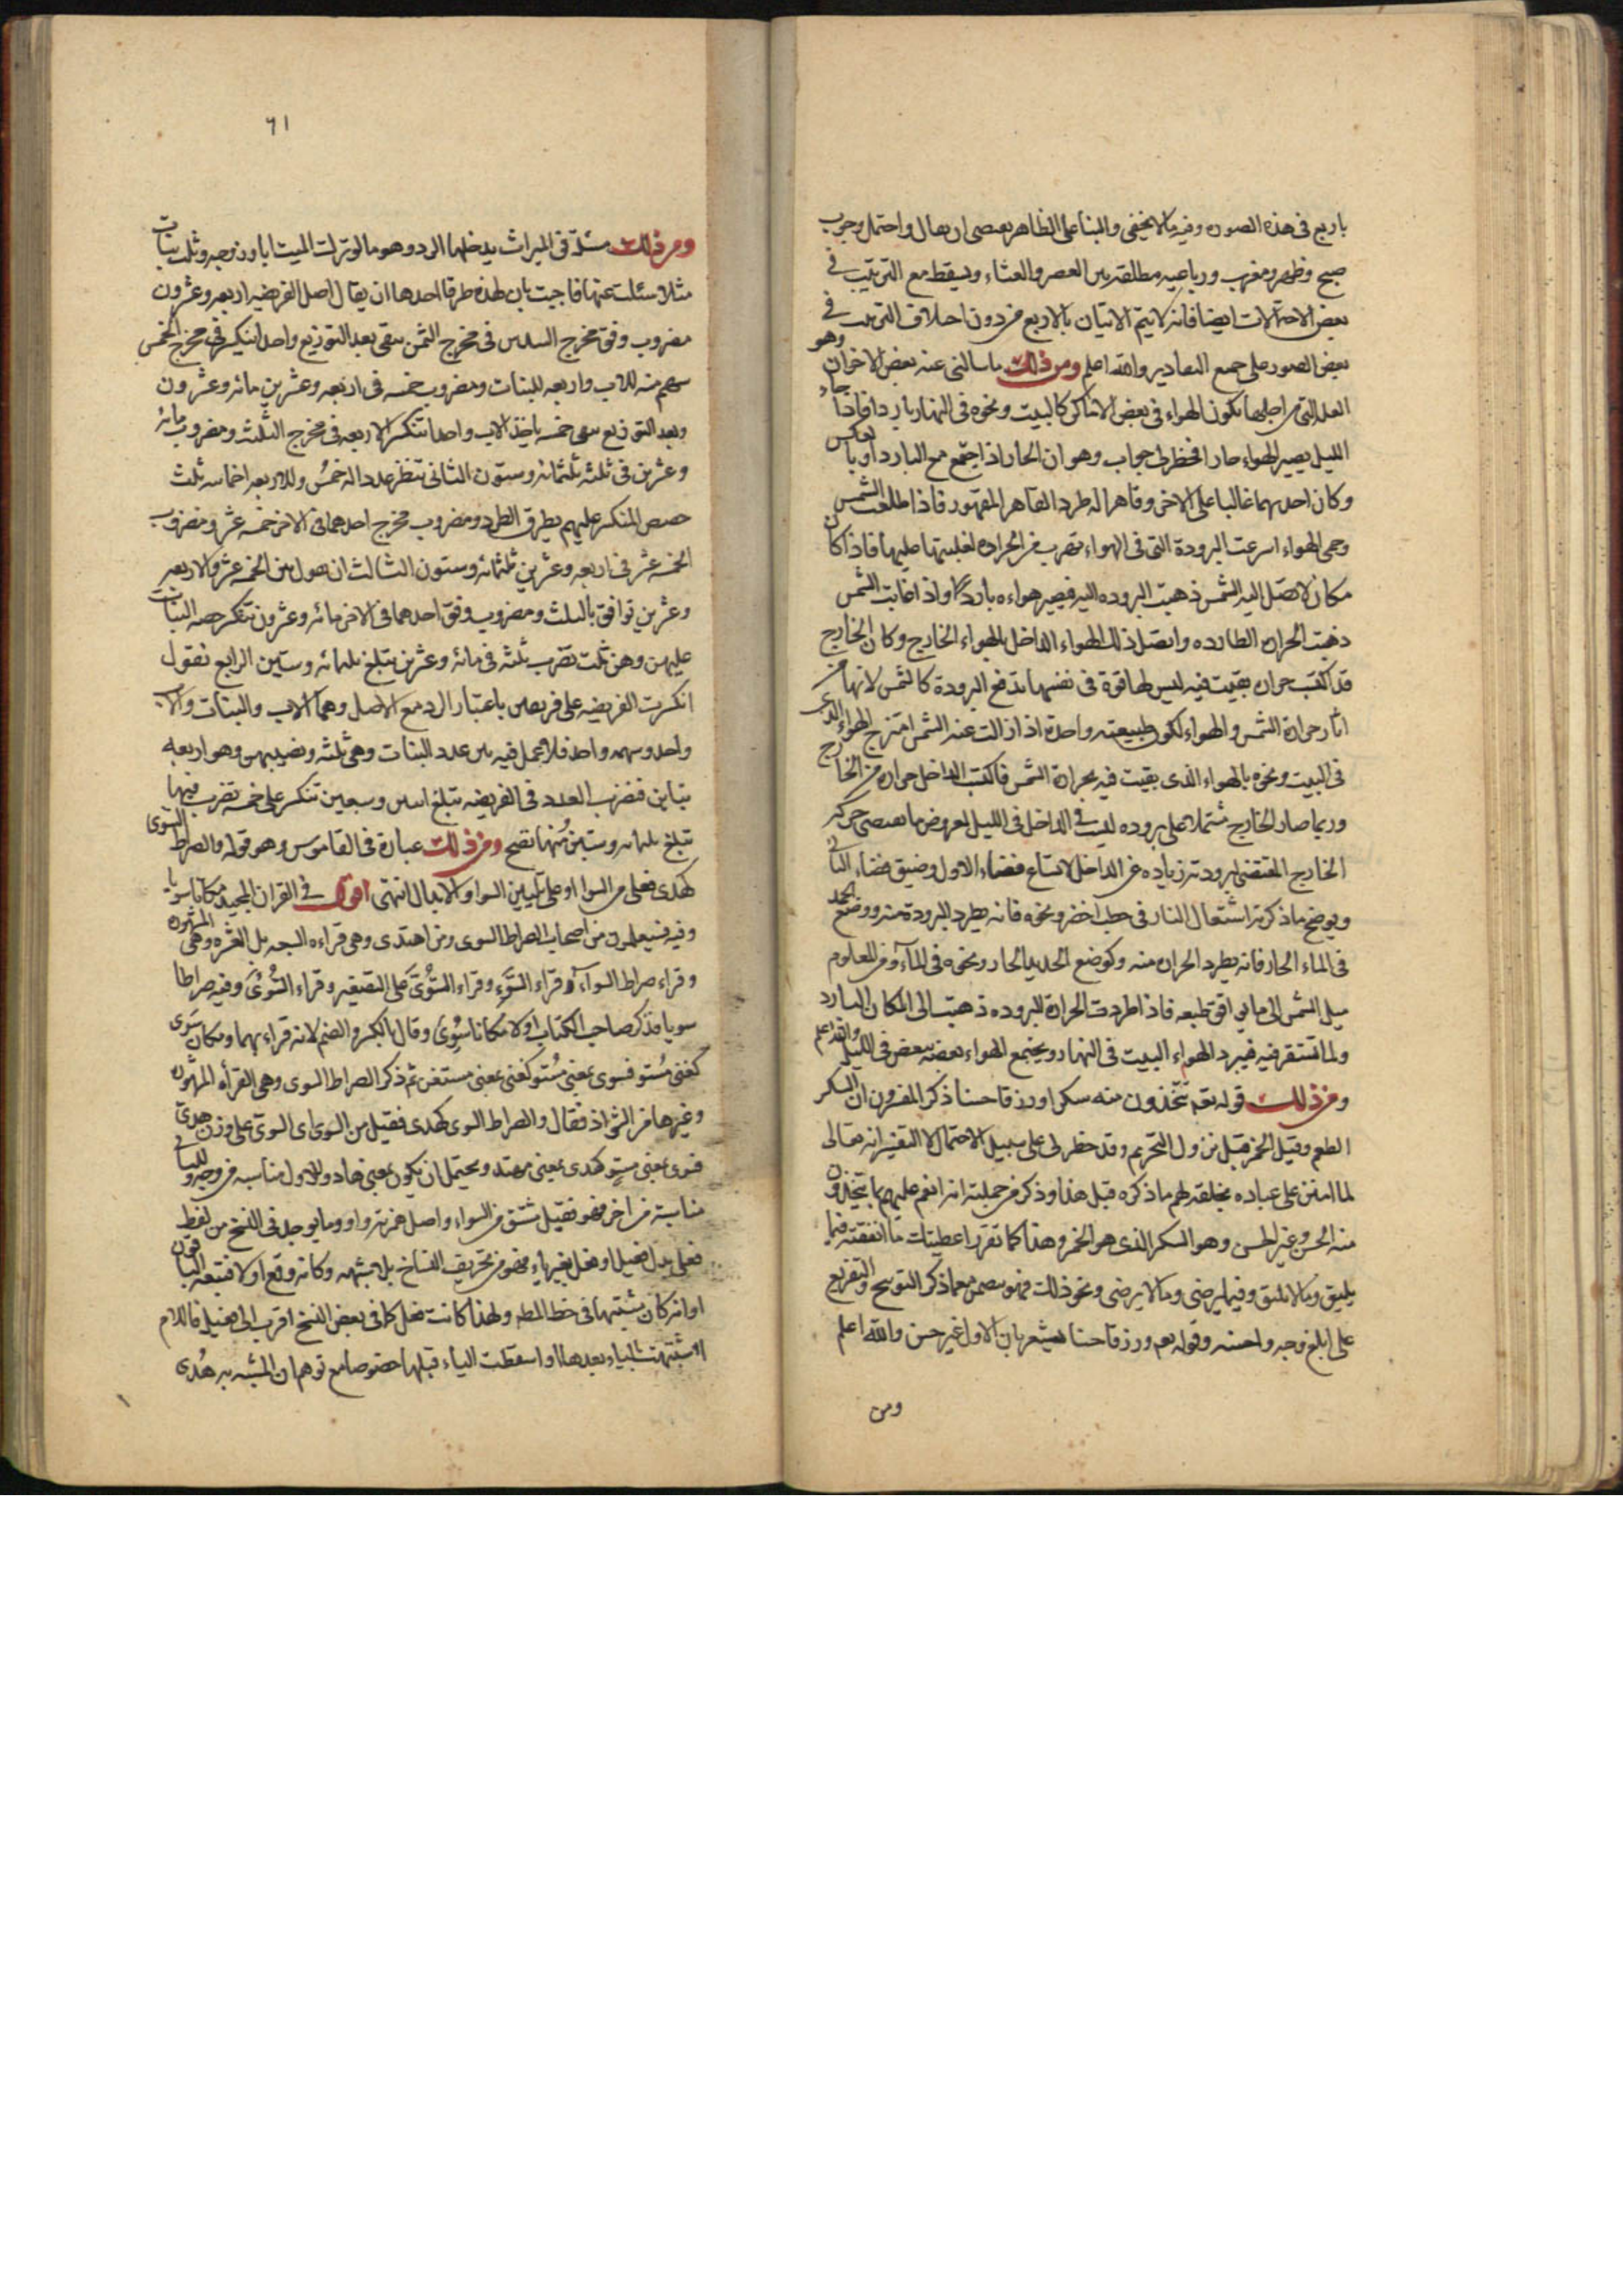 باربع في هذه الصورة وفيه ما لا يخفى والبناء على الظاهر يقتضي ان يقال واحتمل وجوب
صبح وظهر ومغرب ورباعيه مطلقه بين العصر والعشاء ويسقط مع الترتيب في
بعض الاحتمالات ايضا فانه لا يتم الاتيان بالاربع من دون اختلاف الترتيب في
بعض الصور على جميع التقادير والله اعلم ومن ذلك ما سالني عنه بعض الاخوان وهو
العلة التي من اجلها يكون الهواء في بعض الاماكن كالبيت ونحوه في النهار باردا فاذا جاء
الليل يصير الهواء حارا فخطر لي جواب وهو ان الحار اذا اجتمع مع البارد او بالعكس
وكان احدهما غالبا على الاخر وقاهرا له طرد القاهر المقهور فاذا طلعت الشمس
وحمى الهواء اسرعت البرودة التي في الهواء تهرب من الحرارة لغلبتها عليها فاذا كان
مكان لا تصل اليه الشمس ذهبت البروده اليه فيصير هواءه باردا واذا غابت الشمس
ذهبت الحرارة الطارده واتصل ذلك الهواء الداخل بالهواء الخارج وكان الخارج
قد اكتسب حرارة بقيت فيه ليس لها قوة في نفسها تدفع البرودة كالشمس لانها من
اثار حرارة الشمس والهواء لكون طبيعته واحدة اذا زالت عنه الشمس امتزج الهواء الذي
في البيت ونحوه بالهواء الذي بقيت فيه حرارة الشمس فاكتسب الداخل حرارة من الخارج
وربما صار الخارج مشتملا على بروده ليست في الداخل في الليل لعروض ما يقتضي حركة
الخارج المقتضى لبرودته زياده عن الداخل لاتساع فضاء الاول وضيق فضاء الثاني
ويوضح ما ذكرته اشتعال النار في حطب اخضر ونحوه فانه يطرد البرودة منه ووضع الجمد
في الماء الحار فانه يطرد الحرارة منه وكوضع الحديد الحار ونحوه في الماء ومن المعلوم
ميل الشمس الى ما يوافق طبعه فاذا طردت الحرارة البروده ذهبت الى المكان البارد
ولما تستقر فيه فيبرد الهواء البيت في النهار ويجتمع الهواء بعضه ببعض في الليل والله اعلم
ومن ذلك قوله تع تتخذون منه سكرا ورزقا حسنا ذكر المفسرون ان السكر
الطعم وقيل الخمر قبل نزول التحريم وقد خطر لي على سبيل الاحتمال لا التفسير انه تعالى
لما امتن على عباده بخلقه لهم ما ذكره قبل هذا وذكر من جملته انه انعم عليهم بما يتخذون
منه الحسن وغير الحسن وهو السكر الذي هو الخمر وهذا كما تقرر اعطيتك ما انفقته فيما
يليق وما لا يليق وفيما يرضى وما لا يرضى ونحو ذلك فهو متضمن مع ما ذكر التوبيخ والتقريع
على ابلغ وجه واحسنه وقوله تع ورزقا حسنا يشعر بان الاول غير حسن والله اعلم
ومن
٦١
ومن ذلك مسئلة في الميراث يدخلها الرد وهو ما لو ترك الميت ابا وزوجه وثلث بنات
مثلا سئلت عنها فاجبت بان لهذه طرقا احدها ان يقال اصل الفريضه اربعه وعشرون
مضروب وفق مخرج السدس في مخرج الثمن يبقى بعد التوزيع واحد انكسر في مخرج الخمس
سهم منه للاب واربعه للبنات ومضروب خمسه في اربعه وعشرين مائه وعشرون
وبعد التوزيع يبقى خمسه ياخذ الاب واحدا تنكسر الاربعه في مخرج الثلث ومضروب مائه
وعشرين في ثلثه ثلثمائه وستون الثاني تنظر عددا له خمس وللاربعه اخماسه ثلث
حصص المنكسر عليهم بطرق الطرد ومضروب مخرج احدهما في الاخر خمسه عشر ومضروب
الخمسه عشر في اربعه وعشرين ثلثمائه وستون الثالث ان نقول بين الخمسه عشر والاربعه
وعشرين توافق بالثلث ومضروب وفق احدهما في الاخر مائه وعشرون تنكسر حصه البنات
عليهن وهن ثلث تضرب ثلثه في مائه وعشرين يبلغ ثلثمائه وستين الرابع نقول
انكسرت الفريضه على فريقين باعتبار الرد مع الاصل وهما الاب والبنات والاب
واحد وسهمه واحد فلا عمل فيه بين عدد البنات وهي ثلثه ونصيبهن وهو اربعه
تباين فتضرب العدد في الفريضه تبلغ اثنين وسبعين تنكسر على خمسه تضرب فيها
تبلغ ثلثمائه وستين منها تصح ومن ذلك عبارة في القاموس وهو قوله والصراط السوى
كهدى فعلى من السواء او على تليين السواء والابدال انتهى اقول في القران المجيد مكانا سويا
وفيه فستعلمون من اصحاب الصراط السوى ومن اهتدى وهي قراءه السبعه بل العشره وهي المشهوره
وقراء صراط السواء وقراء السوء وقراء السوءى على التصغير وقراء السوءى وفيه صراطا
سويا فذكر صاحب الكتاب اولا مكانا سوى وقال بالكسر والضم لانه قراء بهما ومكان سوى
كغنى مستو فسوى بمعنى مستو كغنى بمعنى مستغن ثم ذكر الصراط السوى وهي القراة المشهوره
وغيرها من الشواذ فقال والصراط السوى كهدى فقيل من السوى اى السوى على وزن هدى
فسوى بمعنى مستو كهدى بمعنى مهتد ويحتمل ان يكون بمعنى هاد وللاول مناسبه من وجه وللثاني
مناسبة من اخر فهو فعيل مشتق من السواء واصل همزته واو وما يوجد في النسخ من لفظ
فعلى بدل فعيل او فعل بغير ياء فهو من تحريف النساخ بل لا شبهه وكانه وقع اولا فتبعه الباقون
او انه كان مشتبها في خط المصنف ولهذا كانت فعل كما في بعض النسخ اقرب الى فعيل فاللام
اشتبهت بالياء بعدها او اسقطت الياء قبلها خصوصا مع توهم ان المشبه به هُدى